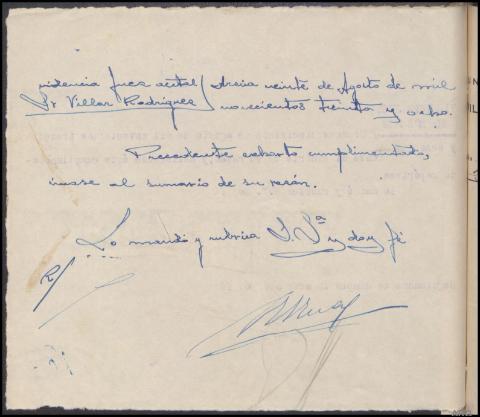 videncia Juez acctal / Arcia veinte de Agosto de mil
Sr Villar Rodriguez / novecientos treinta y ocho.
Precedente exhorto cumplimentado,
únase al sumario de su razón.
Lo mandó y rubrica S. Sª y doy fé
R/